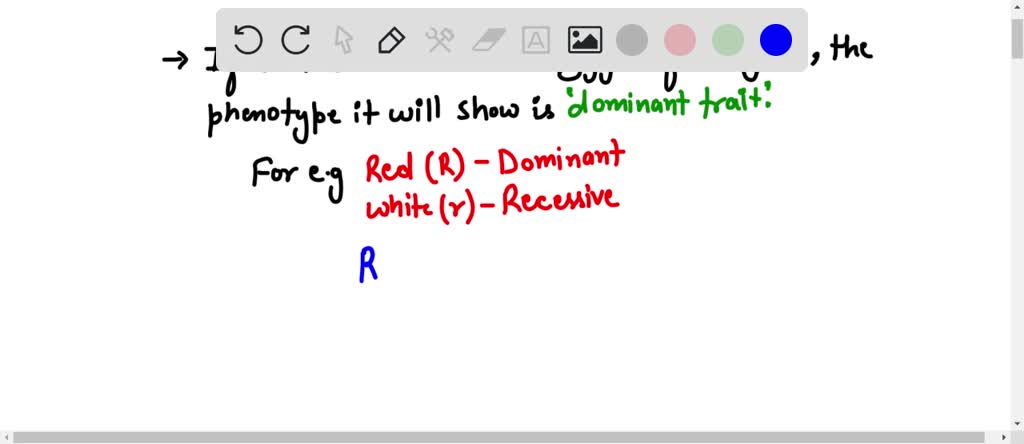 → , the
phenotype it will show is 'dominant trait.'
For e.g Red (R) - Dominant
white (r) - Recessive
R